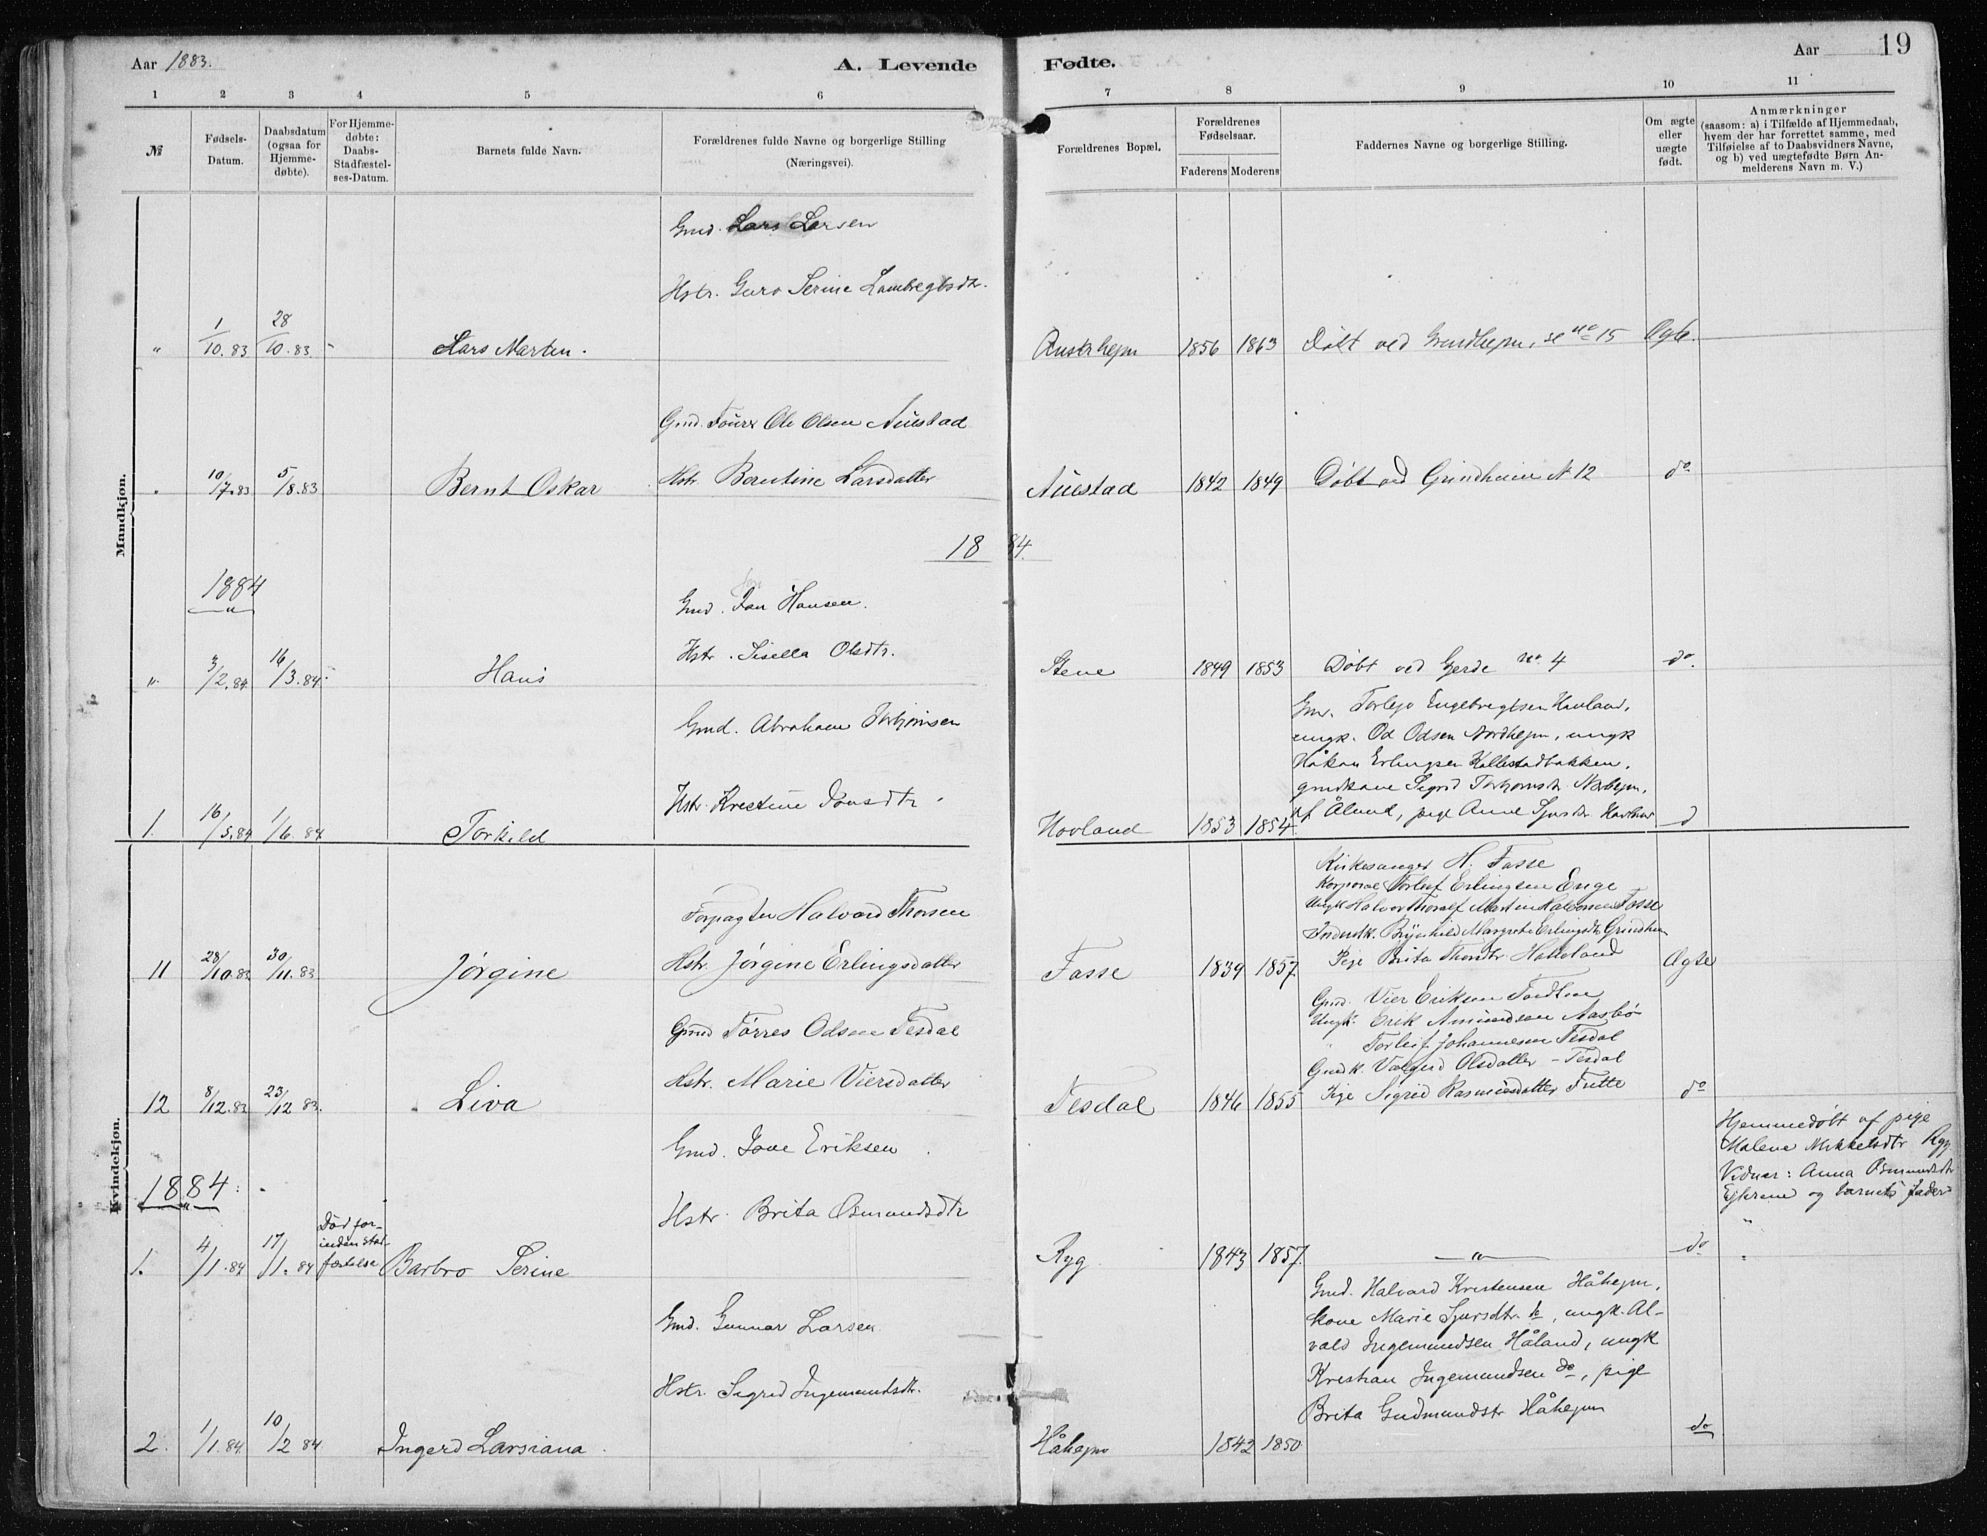 Aar 1883.
A. Levende Fødte.
Aar 19
1 2 3 4 5 6 7 8 9 10 11
№
Fødsels-
Datum.
Daabsdatum
(ogsaa for
Hjemme-
døbte).
For Hjemme-
døbte:
Daabs-
Stadfæstel-
ses-Datum.
Barnets fulde Navn.
Forældrenes fulde Navne og borgerlige Stilling
(Næringsvei).
Forældrenes Bopæl.
Forældrenes
Fødselsaar.
Faderens Moderens
Faddernes Navne og borgerlige Stilling.
Om ægte
eller
uægte
født.
Anmærkninger
(saasom: a) i Tilfælde af Hjemmedaab,
hvem der har forrettet samme, med
Tilføielse af to Daabsvidners Navne,
og b) ved uægtefødte Børn An-
melderens Navn m. V.)
Mandkjøn.
Gmd. Lars Larsen
Hstr. Guro Serine Lambregtsdtr.
" 1/10.83 28/10.83 - Lars Martin. Austrhejm 1856 1863 Døbt ved Grindhejm, se no 15 Ægte.
Gmd. Ole Olsen Auestad
Hstr. Berntine Larsdatter
" 10/7.83 5/8.83 Bernt Oskar Auestad 1842 1849 Døbt ved Grindheim N 12 do
1884.
1884
Gmd. Jan Hansen.
Hstr. Sisella Olsdtr.
" 3/2.84 16/3.84 - Hans Stene 1849 1853 Døbt ved Gjerde no. 4 do.
Gmd. Abraham Torbjørnsen
Hstr. Kristine Jonsdtr.
1. 16/5.84 1/6.84 Torkild Hovland 1853 1854
Gm. Torlejv Engebregtsen Hovland,
ungk. Od Odsen Nordhejm, ungk
Håkon Erlingsen Kallestadbakken,
gmdkone Sigrid Torbjørnsdtr.
af Ålund, pige Anne Sjursdtr.
Kvindekjøn.
Forpagter Halvard Thorsen
Hstr. Jørgine Erlingsdatter
11 28/10.83 30/11.83 Jørgine Fosse 1839 1857 Ægte
Kirkesanger H. Fosse
Korporal Torleif Erlingsen Enge
Ungk Halvor Thoralf Martin Halvorsen Fosse
Brynhild Margrete Erlingsdtr Grindheim
Pige Brita Thorsdtr
Gmd Tørres Odsen Tesdal
Hstr. Marie Viersdatter
12 8/12.83 23/12 83. Liva Tesdal 1846 1855 do
Gmd. Vier Eriksen
Ungk. Erik Amundsen Aasbø
" Torleif Johannesen Tesdal
Gmdk. Valgerd Olsdatter - Tesdal
Pige Sigrid Rasmusdatter Tutte
Gmd. Tove Eriksen
Hstr. Brita Osmundsdtr
1884.
1. 4/1.84 17/1.84 Død for-
inden stad-
fæstelse Barbro Serine Ryg 1843 1857. " do
Hjemmedøbt af pige
Malene Mikkelsdtr Ryg
Vidner: Anna Osmundsdtr
og barnets fader
Gmd. Gunnar Larsen
Hstr. Sigrid Ingemundsdtr.
2. 1/1.84 10/2 84 Ingerd Larsiana. Håhejm 1842 1850 do
Gmd. Halvard Kristensen Håhejm,
kone Marie Sjursdtr. , ungk. Al-
vald Ingemundsen Håland, ungk
Kristian Ingemundsen do, pige
Brita Gudmundsdtr Håhejm